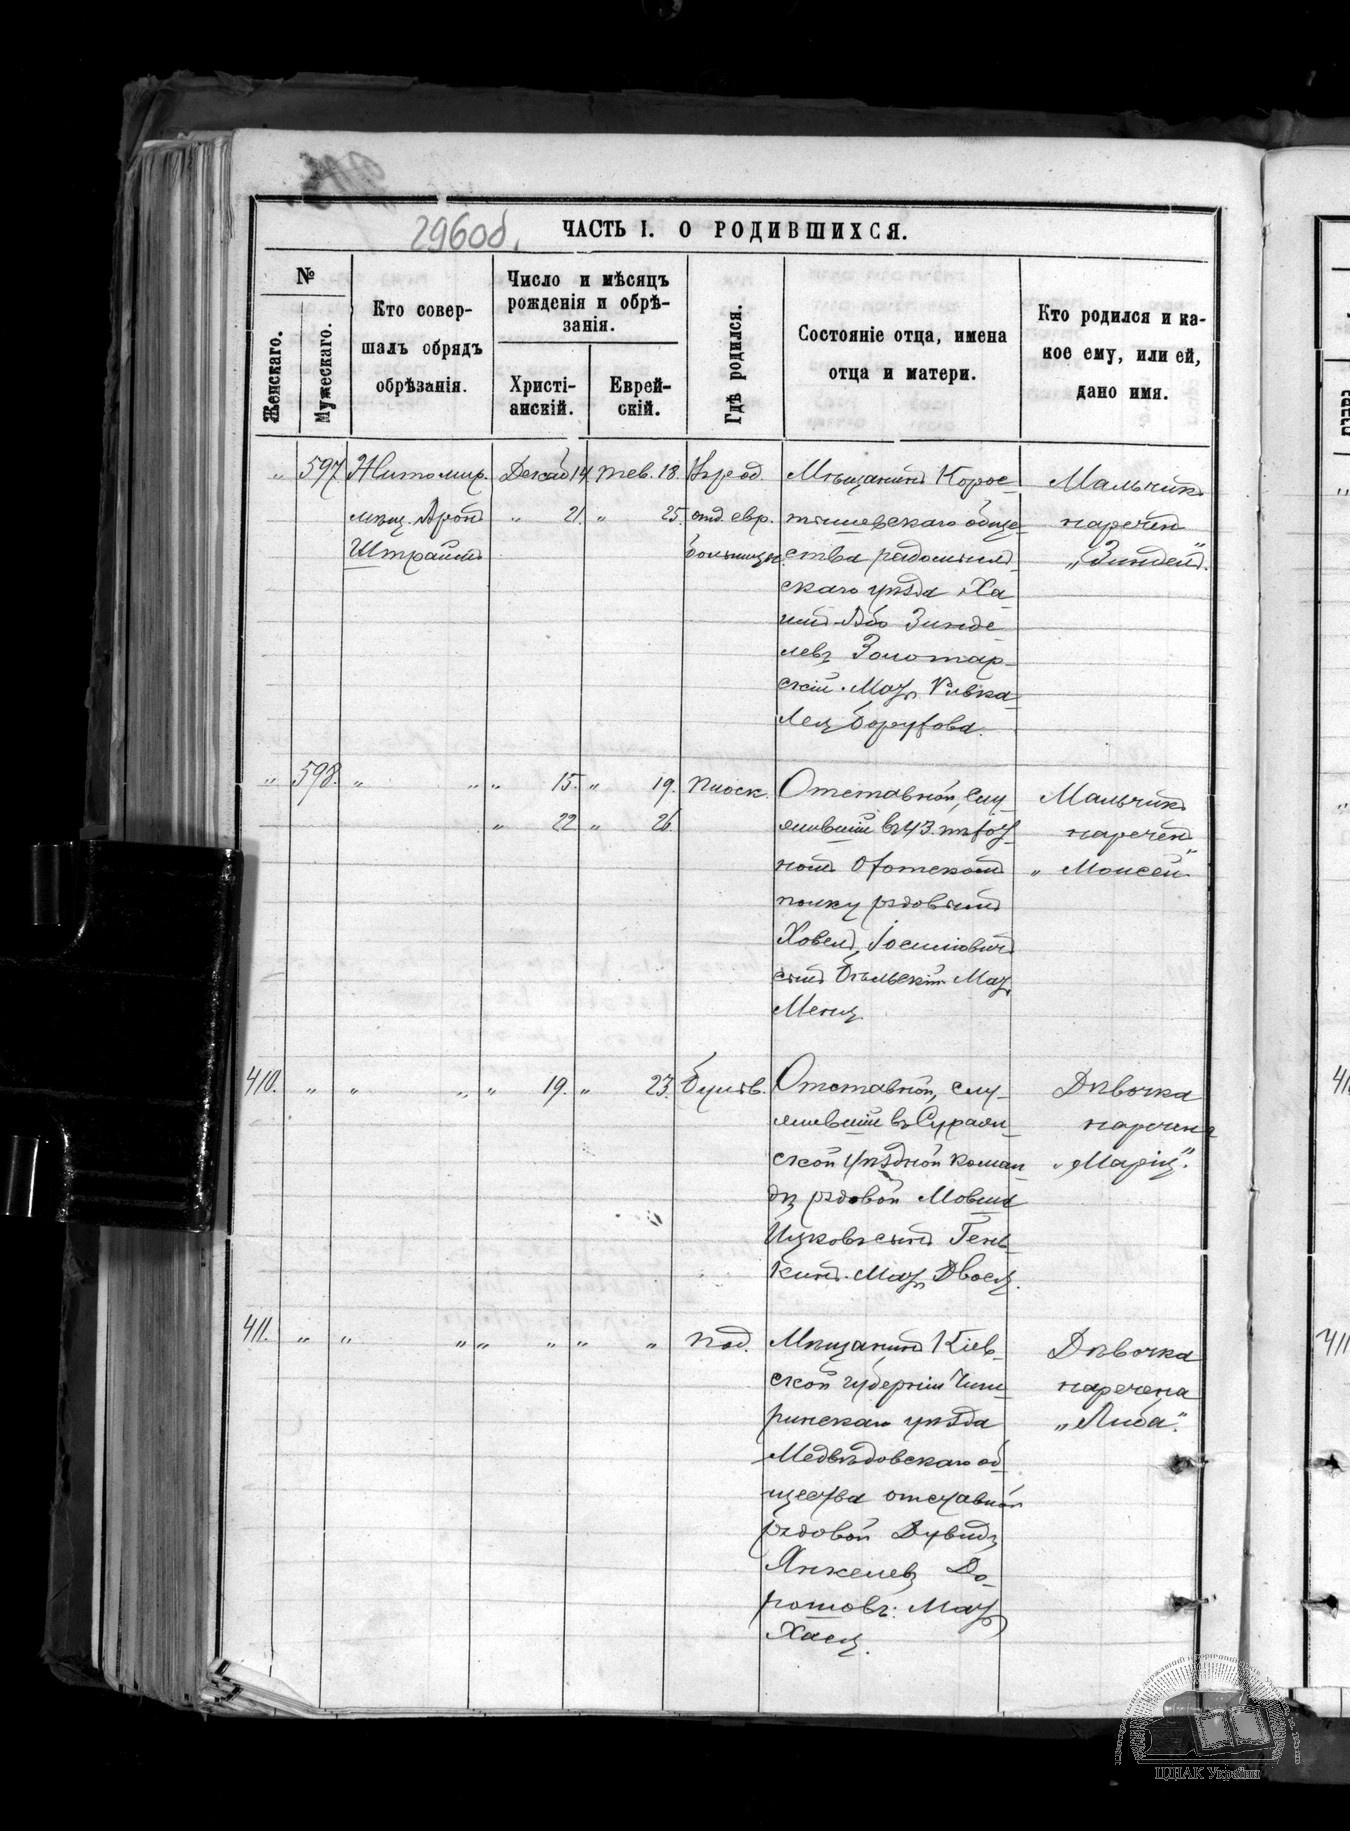 296об.
ЧАСТЬ I. О РОДИВШИХСЯ.
№
Женскаго.
Мужескаго.
Кто совер-
шалъ обрядъ
обрѣзанія.
Число и мѣсяцъ
рожденія и обрѣ-
занія.
Христі-
анскій.
Еврей-
скій.
Гдѣ родился.
Состояніе отца, имена
отца и матери.
Кто родился и ка-
кое ему, или ей,
дано имя.
„ 597 Житомир. Декаб 14 тев. 18.
мѣщ. Аронъ „ 21. „ 25. отд. евр.
Штраймъ больницы
Мѣщанинъ Корос-
тышевскаго обще-
ства радомысл-
скаго уѣзда Ха-
имъ Абъ Зинде
левъ Золотар-
скій. Мать Ривка
Лея Борухова.
Мальчикъ
нареченъ
„Зиндель".
„ 598. „ „ „ 15. „ 19. Плоск.
„ 22 „ 26.
Отставной, слу-
жившій въ 43. пѣхот-
номъ Охотскомъ
полку рядовымъ
Ховель Іосиповичъ
Бѣльскій. Мать
Меня
Мальчикъ
нареченъ
„ Моисей".
410. „ „ „ „ 19. „ 23. Бульв.
Отставной, слу-
жившій въ Сураж-
ской уѣздной коман-
дѣ рядовой Мовша
Ицковъ сынъ Гень-
кинъ. Мать Двося.
Дѣвочка
наречена
„Марія".
411. „ „ „ „ „ „ „ Под.
Мѣщанинъ Кіев-
ской губерніи Чиги-
ринскаго уѣзда
Медвѣдовскаго об-
щества отставной
рядовой Дувидъ
Янкелевъ До-
ротовъ. Мать
Хася.
Дѣвочка
наречена
„Либа".
ЦДІАК України